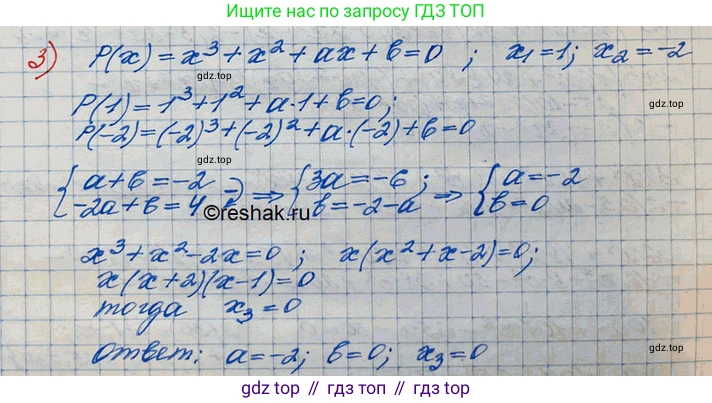 Ищите нас по запросу ГДЗ ТОП
3) P(x) = x³ + x² + ax + b = 0 ; x₁ = 1; x₂ = -2
gdz.top
P(1) = 1³ + 1² + a·1 + b = 0;
gdz.top
P(-2) = (-2)³ + (-2)² + a·(-2) + b = 0
gdz.top
{ a + b = -2 ⇒ { 3a = -6; ⇒ { a = -2
-2a + b = 4 b = -2 - a b = 0
©reshak.ru
x³ + x² - 2x = 0 ; x(x² + x - 2) = 0;
gdz.top
x(x + 2)(x - 1) = 0
тогда x₃ = 0
gdz.top
Ответ: a = -2; b = 0; x₃ = 0
gdz top // гдз топ // гдз.top